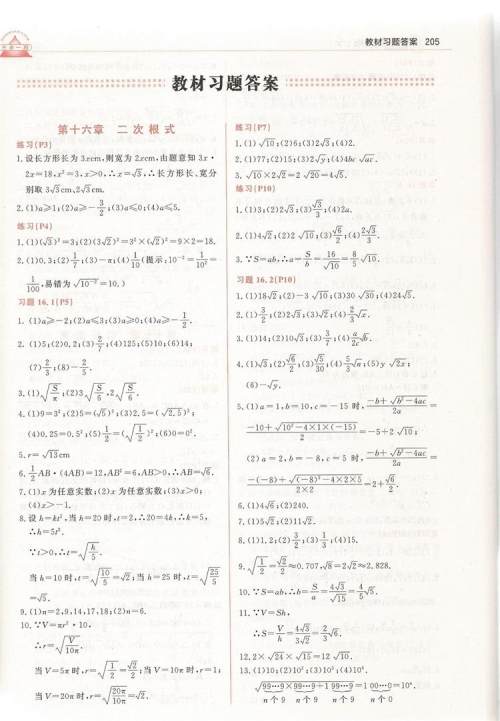 教材习题答案 205
教材习题答案
第十六章 二次根式
练习(P3)
1.设长方形长为3xcm,则宽为2xcm,由题意知3x·
2x=18,x²=3,x>0,∴x=√3,∴长方形长、宽分
别取3√3cm,2√3cm.
2.(1)a≥1;(2)a≥-3/2;(3)a≤0;(4)a≤5.
练习(P4)
1.(1)(√3)²=3;(2)(3√2)²=3²×(√2)²=9×2=18.
2.(1)0.3;(2)1/7;(3)-π;(4)1/10(提示:10⁻²=1/10²=
1/100,易错为√10⁻²=10.)
习题16.1(P5)
1.(1)a≥-2;(2)a≤3;(3)a≥0;(4)a≥-1/2.
2.(1)5;(2)0.2;(3)2/7;(4)125;(5)10;(6)14;
(7)2/3;(8)-2/5.
3.(1)√(S/π);(2)3√(S/6),2√(S/6).
4.(1)9=3²;(2)5=(√5)²;(3)2.5=(√2.5)²;
(4)0.25=0.5²;(5)1/2=(√(1/2))²;(6)0=0².
5.r=√13cm
6.1/2AB·(4AB)=12,AB²=6,AB>0,∴AB=√6.
7.(1)x为任意实数;(2)x为任意实数;(3)x>0;
(4)x>-1.
8.设h=kt²,当h=20时,t=2,∴20=4k,∴k=5,
∴h=5t².
∵t>0,∴t=√(h/5).
当h=10时,t=√(10/5)=√2;当h=25时,t=√(25/5)
=√5.
9.(1)n=2,9,14,17,18;(2)n=6.
10.∵V=πr²·10,
∴r=√(V/10π).
当V=5π时,r=√(1/2)=√2/2;当V=10π时,r=1;
当V=20π时,r=√(20π/10π)=√2.
练习(P7)
1.(1)√10;(2)6;(3)2√3;(4)2.
2.(1)77;(2)15;(3)2√y;(4)4bc√ac.
3.√10×2√2=2√20=4√5.
练习(P10)
1.(1)3;(2)2√3;(3)√3/3;(4)2a.
2.(1)4√2;(2)2√10;(3)√6/2;(4)2√3/3.
3.∵S=ab,∴a=S/b=16/√10=8/5√10.
习题16.2(P10)
1.(1)18√2;(2)-3√10;(3)30√30;(4)24√5.
2.(1)3/2;(2)2√3;(3)√2;(4)2/3√x.
3.(1)14;(2)10√3;(3)3/7;(4)a/2c√b.
4.(1)√3;(2)√6/2;(3)√5/30;(4)5/3√n;(5)y√2x;
(6)-√y.
5.(1)a=1,b=10,c=-15时,(-b+√(b²-4ac))/2a=
(-10+√(10²-4×1×(-15)))/2=-5+2√10;
(2)a=2,b=-8,c=5时,(-b+√(b²-4ac))/2a=
(-(-8)+√((-8)²-4×2×5))/(2×2)=2+√6/2.
6.(1)4√6;(2)240.
7.(1)5√2;(2)11√2.
8.(1)1.2;(2)3/2;(3)1/3;(4)15.
9.√(1/2)=√2/2≈0.707,√8=2√2≈2.828.
10.∵S=ab,∴b=S/a=4√3/√15=4/5√5.
11.∵V=Sh,
∴S=V/h=4√3/3√2=2/3√6.
12.2×√24×√15=12√10.
13.(1)10;(2)10²;(3)10³;(4)10⁴.
√(99…9×99…9+199…9)=100…0=10ⁿ.
n个9 n个9 n个9 n个0